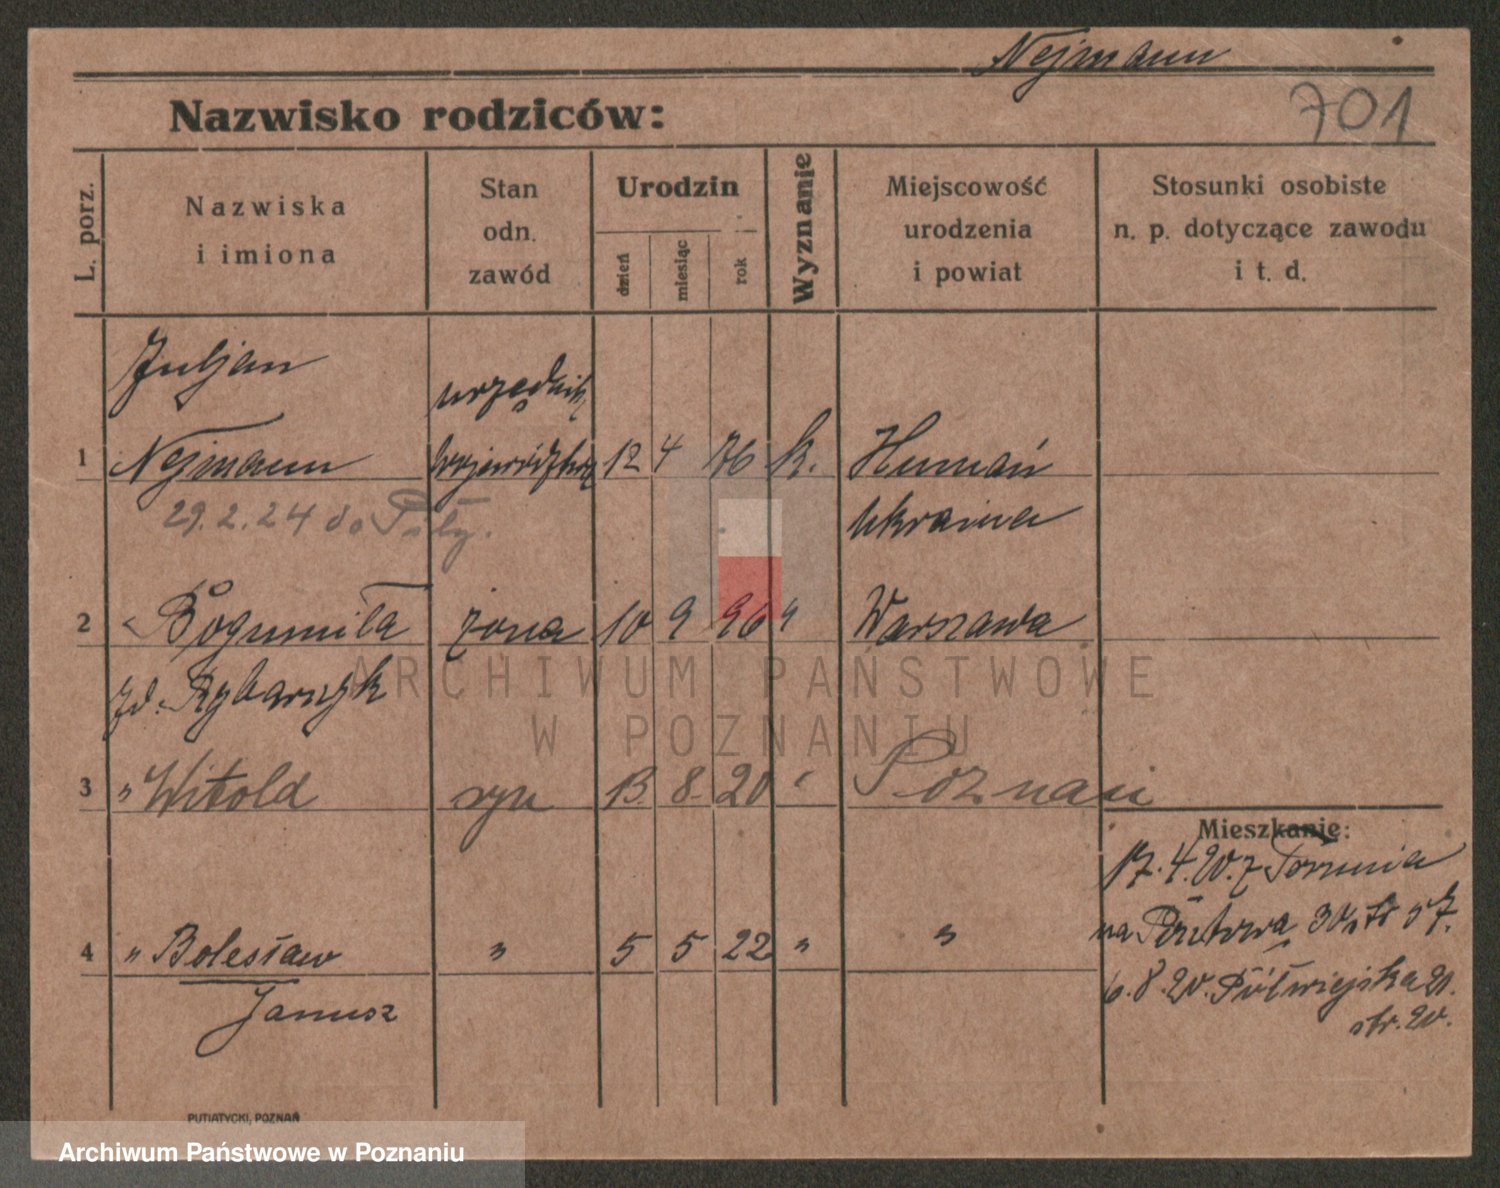 Nejmann
Nazwisko rodziców:
701
L. porz.
Nazwiska
i imiona
Stan
odn.
zawód
Urodzin
dzień
miesiąc
rok
Wyznanie
Miejscowość
urodzenia
i powiat
Stosunki osobiste
n. p. dotyczące zawodu
i t. d.
Juljan
urzędnik
1 Nejmann 12 4 76 k. Humań
29.2.24 do Piły. Ukraina
2 " Bogumiła żona 10 9 96 " Warszawa
zd. Rybarczyk
ARCHIWUM PAŃSTWOWE
W POZNANIU
3 " Witold syn 13. 8. 20 " Poznań
Mieszkanie:
17.4.20. z Torunia
na
4 " Bolesław " 5 5 22 " "
Janusz
6.8.20. Półwiejska 21.
str. 20.
PUTIATYCKI, POZNAŃ
Archiwum Państwowe w Poznaniu